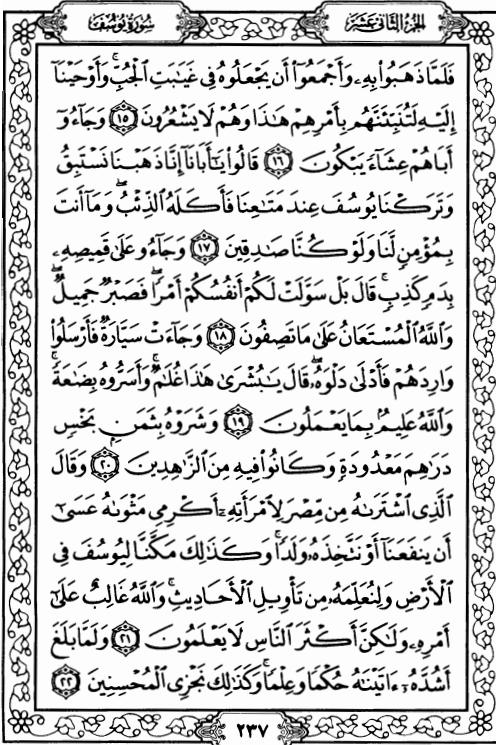 الجزء الثاني عشر
سورة يوسف
فَلَمَّا ذَهَبُوا۟ بِهِۦ وَأَجْمَعُوٓا۟ أَن يَجْعَلُوهُ فِى غَيَٰبَتِ ٱلْجُبِّ ۚ وَأَوْحَيْنَآ
إِلَيْهِ لَتُنَبِّئَنَّهُم بِأَمْرِهِمْ هَٰذَا وَهُمْ لَا يَشْعُرُونَ ١٥ وَجَآءُوٓ
أَبَاهُمْ عِشَآءً يَبْكُونَ ١٦ قَالُوا۟ يَٰٓأَبَانَآ إِنَّا ذَهَبْنَا نَسْتَبِقُ
وَتَرَكْنَا يُوسُفَ عِندَ مَتَٰعِنَا فَأَكَلَهُ ٱلذِّئْبُ ۖ وَمَآ أَنتَ
بِمُؤْمِنٍ لَّنَا وَلَوْ كُنَّا صَٰدِقِينَ ١٧ وَجَآءُو عَلَىٰ قَمِيصِهِۦ
بِدَمٍ كَذِبٍ ۚ قَالَ بَلْ سَوَّلَتْ لَكُمْ أَنفُسُكُمْ أَمْرًا ۖ فَصَبْرٌ جَمِيلٌ ۖ
وَٱللَّهُ ٱلْمُسْتَعَانُ عَلَىٰ مَا تَصِفُونَ ١٨ وَجَآءَتْ سَيَّارَةٌ فَأَرْسَلُوا۟
وَارِدَهُمْ فَأَدْلَىٰ دَلْوَهُۥ ۖ قَالَ يَٰبُشْرَىٰ هَٰذَا غُلَٰمٌ ۚ وَأَسَرُّوهُ بِضَٰعَةً ۚ
وَٱللَّهُ عَلِيمٌۢ بِمَا يَعْمَلُونَ ١٩ وَشَرَوْهُ بِثَمَنٍۭ بَخْسٍ
دَرَٰهِمَ مَعْدُودَةٍ وَكَانُوا۟ فِيهِ مِنَ ٱلزَّٰهِدِينَ ٢٠ وَقَالَ
ٱلَّذِى ٱشْتَرَىٰهُ مِن مِّصْرَ لِٱمْرَأَتِهِۦٓ أَكْرِمِى مَثْوَىٰهُ عَسَىٰٓ
أَن يَنفَعَنَآ أَوْ نَتَّخِذَهُۥ وَلَدًا ۚ وَكَذَٰلِكَ مَكَّنَّا لِيُوسُفَ فِى
ٱلْأَرْضِ وَلِنُعَلِّمَهُۥ مِن تَأْوِيلِ ٱلْأَحَادِيثِ ۚ وَٱللَّهُ غَالِبٌ عَلَىٰٓ
أَمْرِهِۦ وَلَٰكِنَّ أَكْثَرَ ٱلنَّاسِ لَا يَعْلَمُونَ ٢١ وَلَمَّا بَلَغَ
أَشُدَّهُۥٓ ءَاتَيْنَٰهُ حُكْمًا وَعِلْمًا ۚ وَكَذَٰلِكَ نَجْزِى ٱلْمُحْسِنِينَ ٢٢
٢٣٧